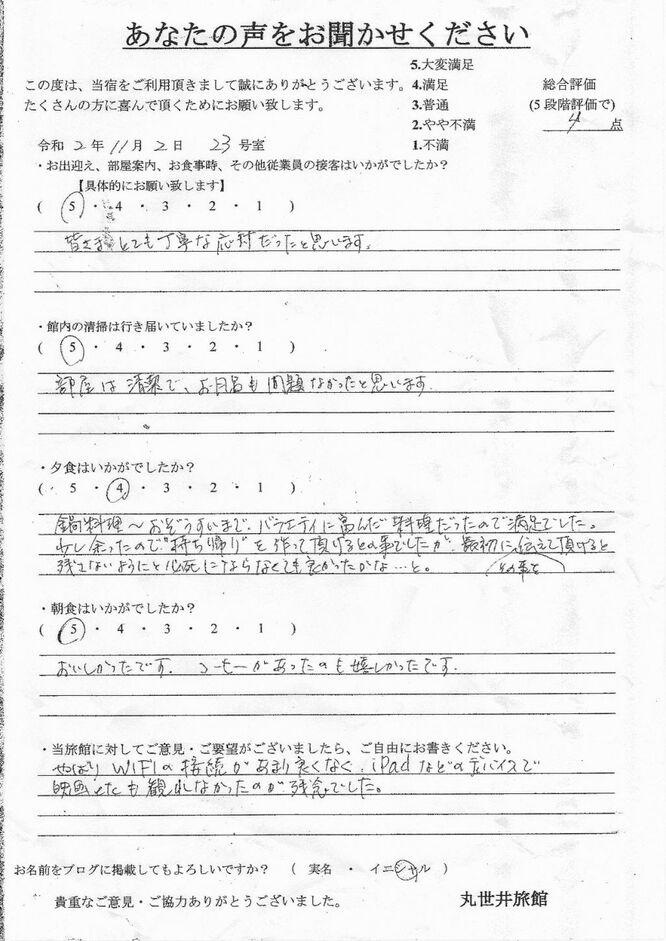 あなたの声をお聞かせください
この度は、当宿をご利用頂きまして誠にありがとうございます。
たくさんの方に喜んで頂くためにお願い致します。
5.大変満足
4.満足
3.普通
2.やや不満
1.不満
総合評価
(5段階評価で)
4 点
令和 2 年 11 月 2 日 23 号室
・お出迎え、部屋案内、お食事時、その他従業員の接客はいかがでしたか?
【具体的にお願い致します】
( 5 ・ 4 ・ 3 ・ 2 ・ 1 )
皆さまとても丁寧な応対だったと思います。
・館内の清掃は行き届いていましたか?
( 5 ・ 4 ・ 3 ・ 2 ・ 1 )
部屋は清潔で、お風呂も問題なかったと思います.
・夕食はいかがでしたか?
( 5 ・ 4 ・ 3 ・ 2 ・ 1 )
鍋料理～おぞうすいまで、バラエティに富んだ料理だったので満足でした。
少し余ったので"持ち帰り"を作って頂けるとの事でしたが、最初に伝えて頂けると
その事を
残さないようにと必死にならなくても良かったかな…と。
・朝食はいかがでしたか?
( 5 ・ 4 ・ 3 ・ 2 ・ 1 )
おいしかったです. コーヒーがあったのも嬉しかったです.
・当旅館に対してご意見・ご要望がございましたら、ご自由にお書きください。
やはりWiFiの接続があまり良くなく、iPadなどのデバイスで
映画etcも観れなかったのが残念でした。
お名前をブログに掲載してもよろしいですか? ( 実名 ・ イニシャル )
貴重なご意見・ご協力ありがとうございました。
丸世井旅館